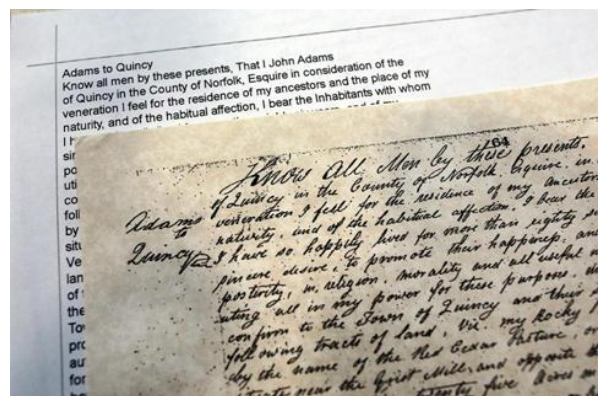 Adams to Quincy
Know all men by these presents, That I John Adams
of Quincy in the County of Norfolk, Esquire in consideration of the
veneration I feel for the residence of my ancestors and the place of my
naturity, and of the habitual affection, I bear the Inhabitants with whom
I h
sir
po
uti
co
foll
by
situ
Ve
lan
of
the
Tow
pro
au
for
64
Know All Men by these presents.
of Quincy in the County of Norfolk. Esquire. in
Adams to Quincy
veneration I fell for the residence of my Ancestor
naturity, and of the habitual affection. I bear the
I have so happily lived for more than eighty
sincere desire, to promote their happiness, and
postirity, in, religion, morality and all useful
uting all in my power for these purposes, do
confirm to the Town of Quincy and their
following tracts of land, Viz. my Rocky
by the name of the Red Cedar Pasture, or
near the Grist Mill, and opposite the
twenty five Acres